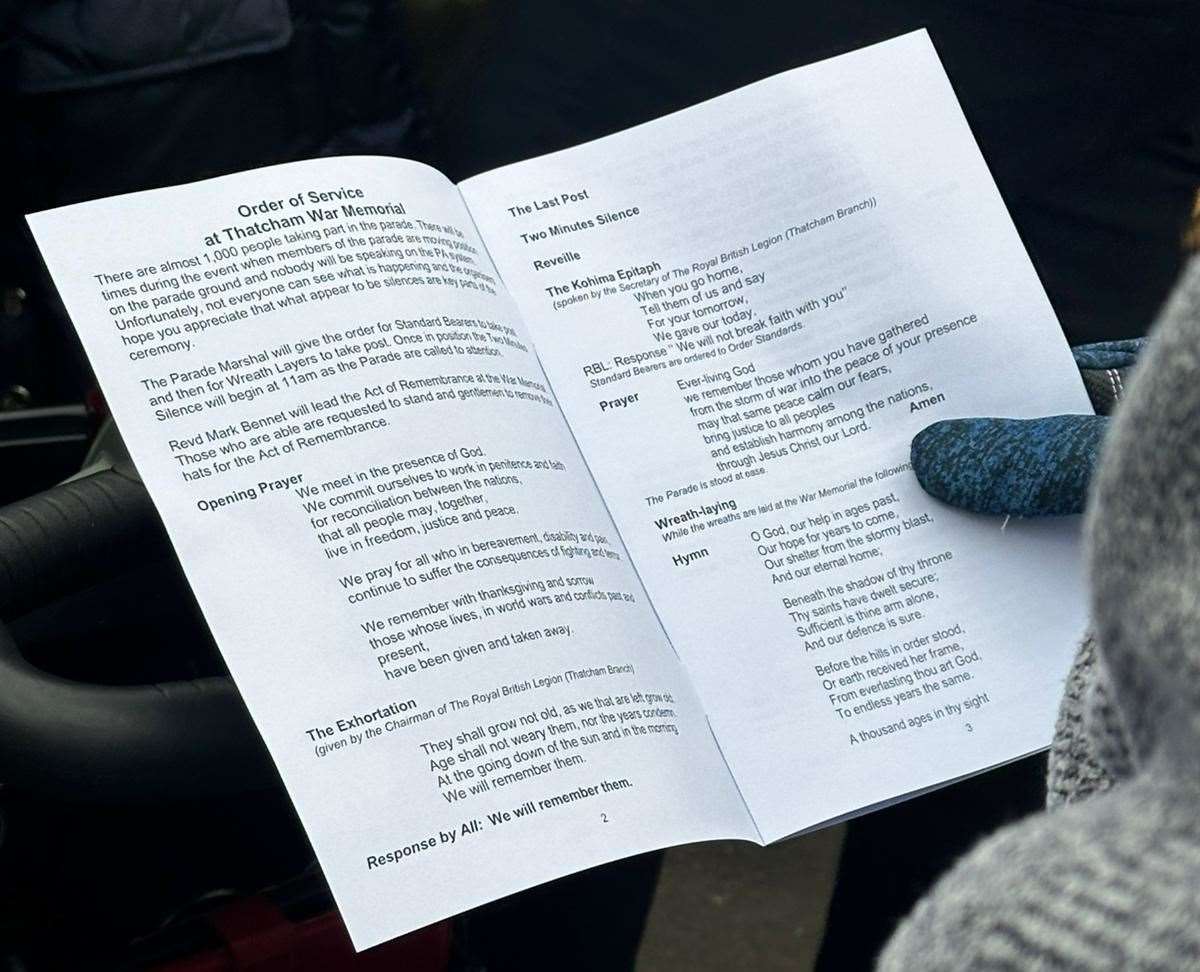 Order of Service
at Thatcham War Memorial
There are almost 1,000 people taking part in the parade. There will be
times during the event when members of the parade are moving position
on the parade ground and nobody will be speaking on the PA system.
Unfortunately, not everyone can see what is happening and the organisers
hope you appreciate that what appear to be silences are key parts of the
ceremony.
The Parade Marshal will give the order for Standard Bearers to take post
and then for Wreath Layers to take post. Once in position the Two Minutes
Silence will begin at 11am as the Parade are called to attention.
Revd Mark Bennet will lead the Act of Remembrance at the War Memorial.
Those who are able are requested to stand and gentlemen to remove their
hats for the Act of Remembrance.
Opening Prayer
We meet in the presence of God.
We commit ourselves to work in penitence and faith
for reconciliation between the nations,
that all people may, together,
live in freedom, justice and peace.
We pray for all who in bereavement, disability and pain
continue to suffer the consequences of fighting and terror
We remember with thanksgiving and sorrow
those whose lives, in world wars and conflicts past and
present,
have been given and taken away.
The Exhortation
(given by the Chairman of The Royal British Legion (Thatcham Branch)
They shall grow not old, as we that are left grow old,
Age shall not weary them, nor the years condemn.
At the going down of the sun and in the morning
We will remember them.
Response by All: We will remember them.
2
The Last Post
Two Minutes Silence
Reveille
The Kohima Epitaph
(spoken by the Secretary of The Royal British Legion (Thatcham Branch))
When you go home,
Tell them of us and say
For your tomorrow,
We gave our today.
RBL: Response " We will not break faith with you"
Standard Bearers are ordered to Order Standards.
Prayer
Ever-living God
we remember those whom you have gathered
from the storm of war into the peace of your presence
may that same peace calm our fears,
bring justice to all peoples
and establish harmony among the nations,
through Jesus Christ our Lord.
Amen
The Parade is stood at ease.
Wreath-laying
While the wreaths are laid at the War Memorial the following
Hymn
O God, our help in ages past,
Our hope for years to come,
Our shelter from the stormy blast,
And our eternal home;
Beneath the shadow of thy throne
Thy saints have dwelt secure;
Sufficient is thine arm alone,
And our defence is sure.
Before the hills in order stood,
Or earth received her frame,
From everlasting thou art God,
To endless years the same.
A thousand ages in thy sight
3